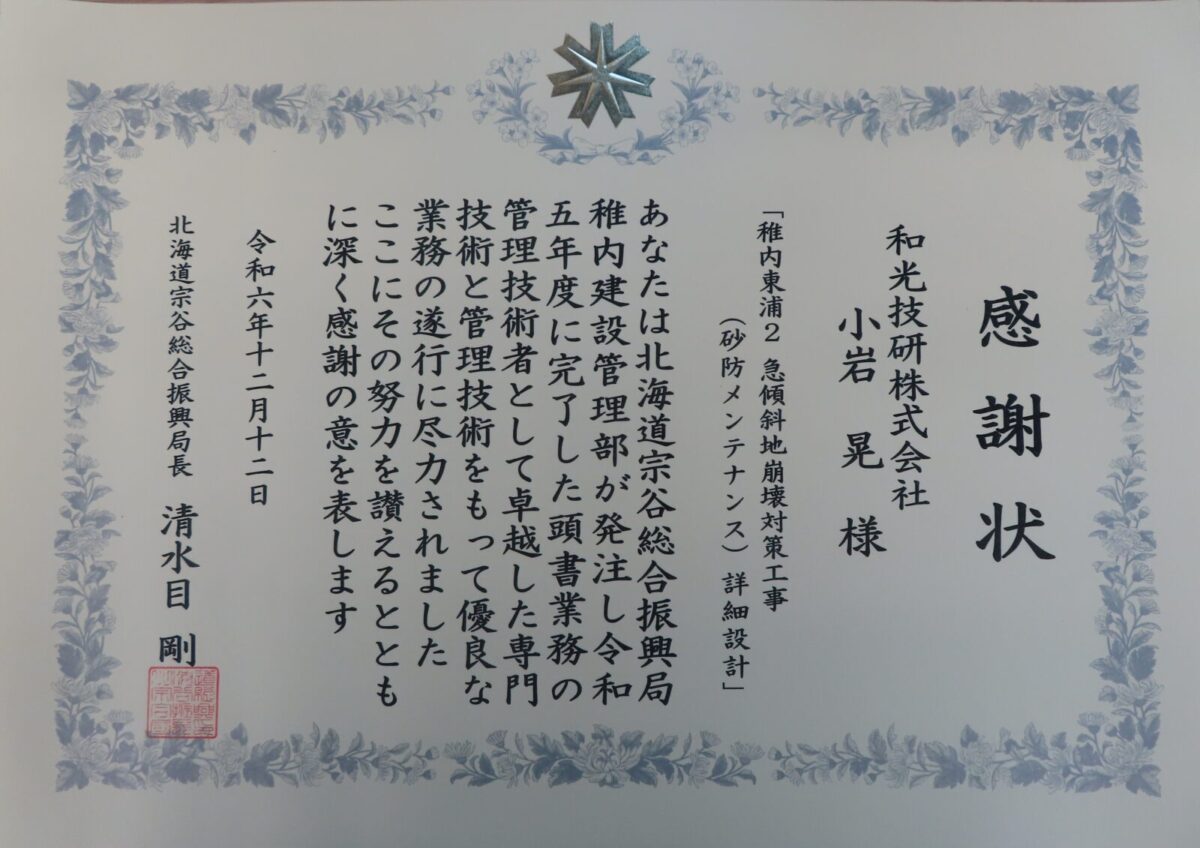 感謝状
和光技研株式会社
小岩 晃 様
「稚内東浦2 急傾斜地崩壊対策工事
(砂防メンテナンス) 詳細設計」
あなたは北海道宗谷総合振興局
稚内建設管理部が発注し令和
五年度に完了した頭書業務の
管理技術者として卓越した専門
技術と管理技術をもって優良な
業務の遂行に尽力されました
ここにその努力を讃えるととも
に深く感謝の意を表します
令和六年十二月十二日
北海道宗谷総合振興局長 清水目 剛